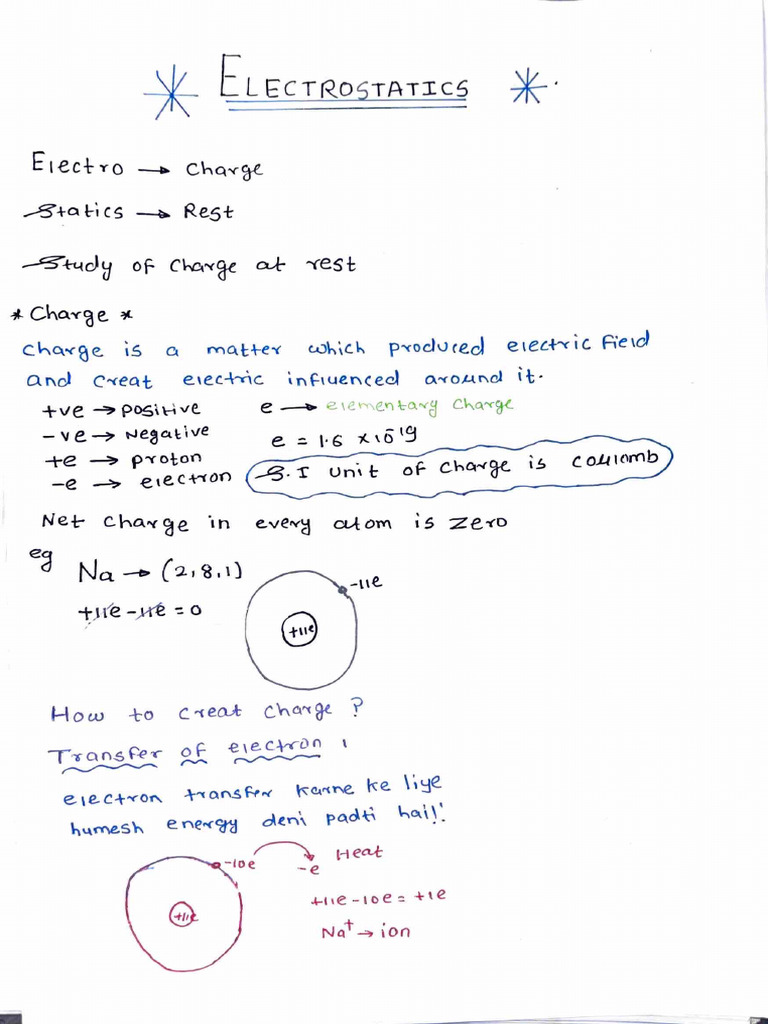 * ELECTROSTATICS *
Electro → Charge
Statics → Rest
Study of charge at rest
* Charge *
Charge is a matter which produced electric field
and creat electric influenced around it.
+ve → positive e → elementary charge
-ve → Negative e = 1.6 × 10⁻¹⁹
+e → proton
-e → electron S.I unit of charge is coulomb
Net charge in every atom is zero
eg
Na → (2,8,1) -11e
+11e -11e = 0 +11e
How to creat charge ?
Transfer of electron
electron transfer karne ke liye
humesh energy deni padti hai!!
-10e -e Heat
+11e
+11e -10e = +1e
Na⁺ → ion